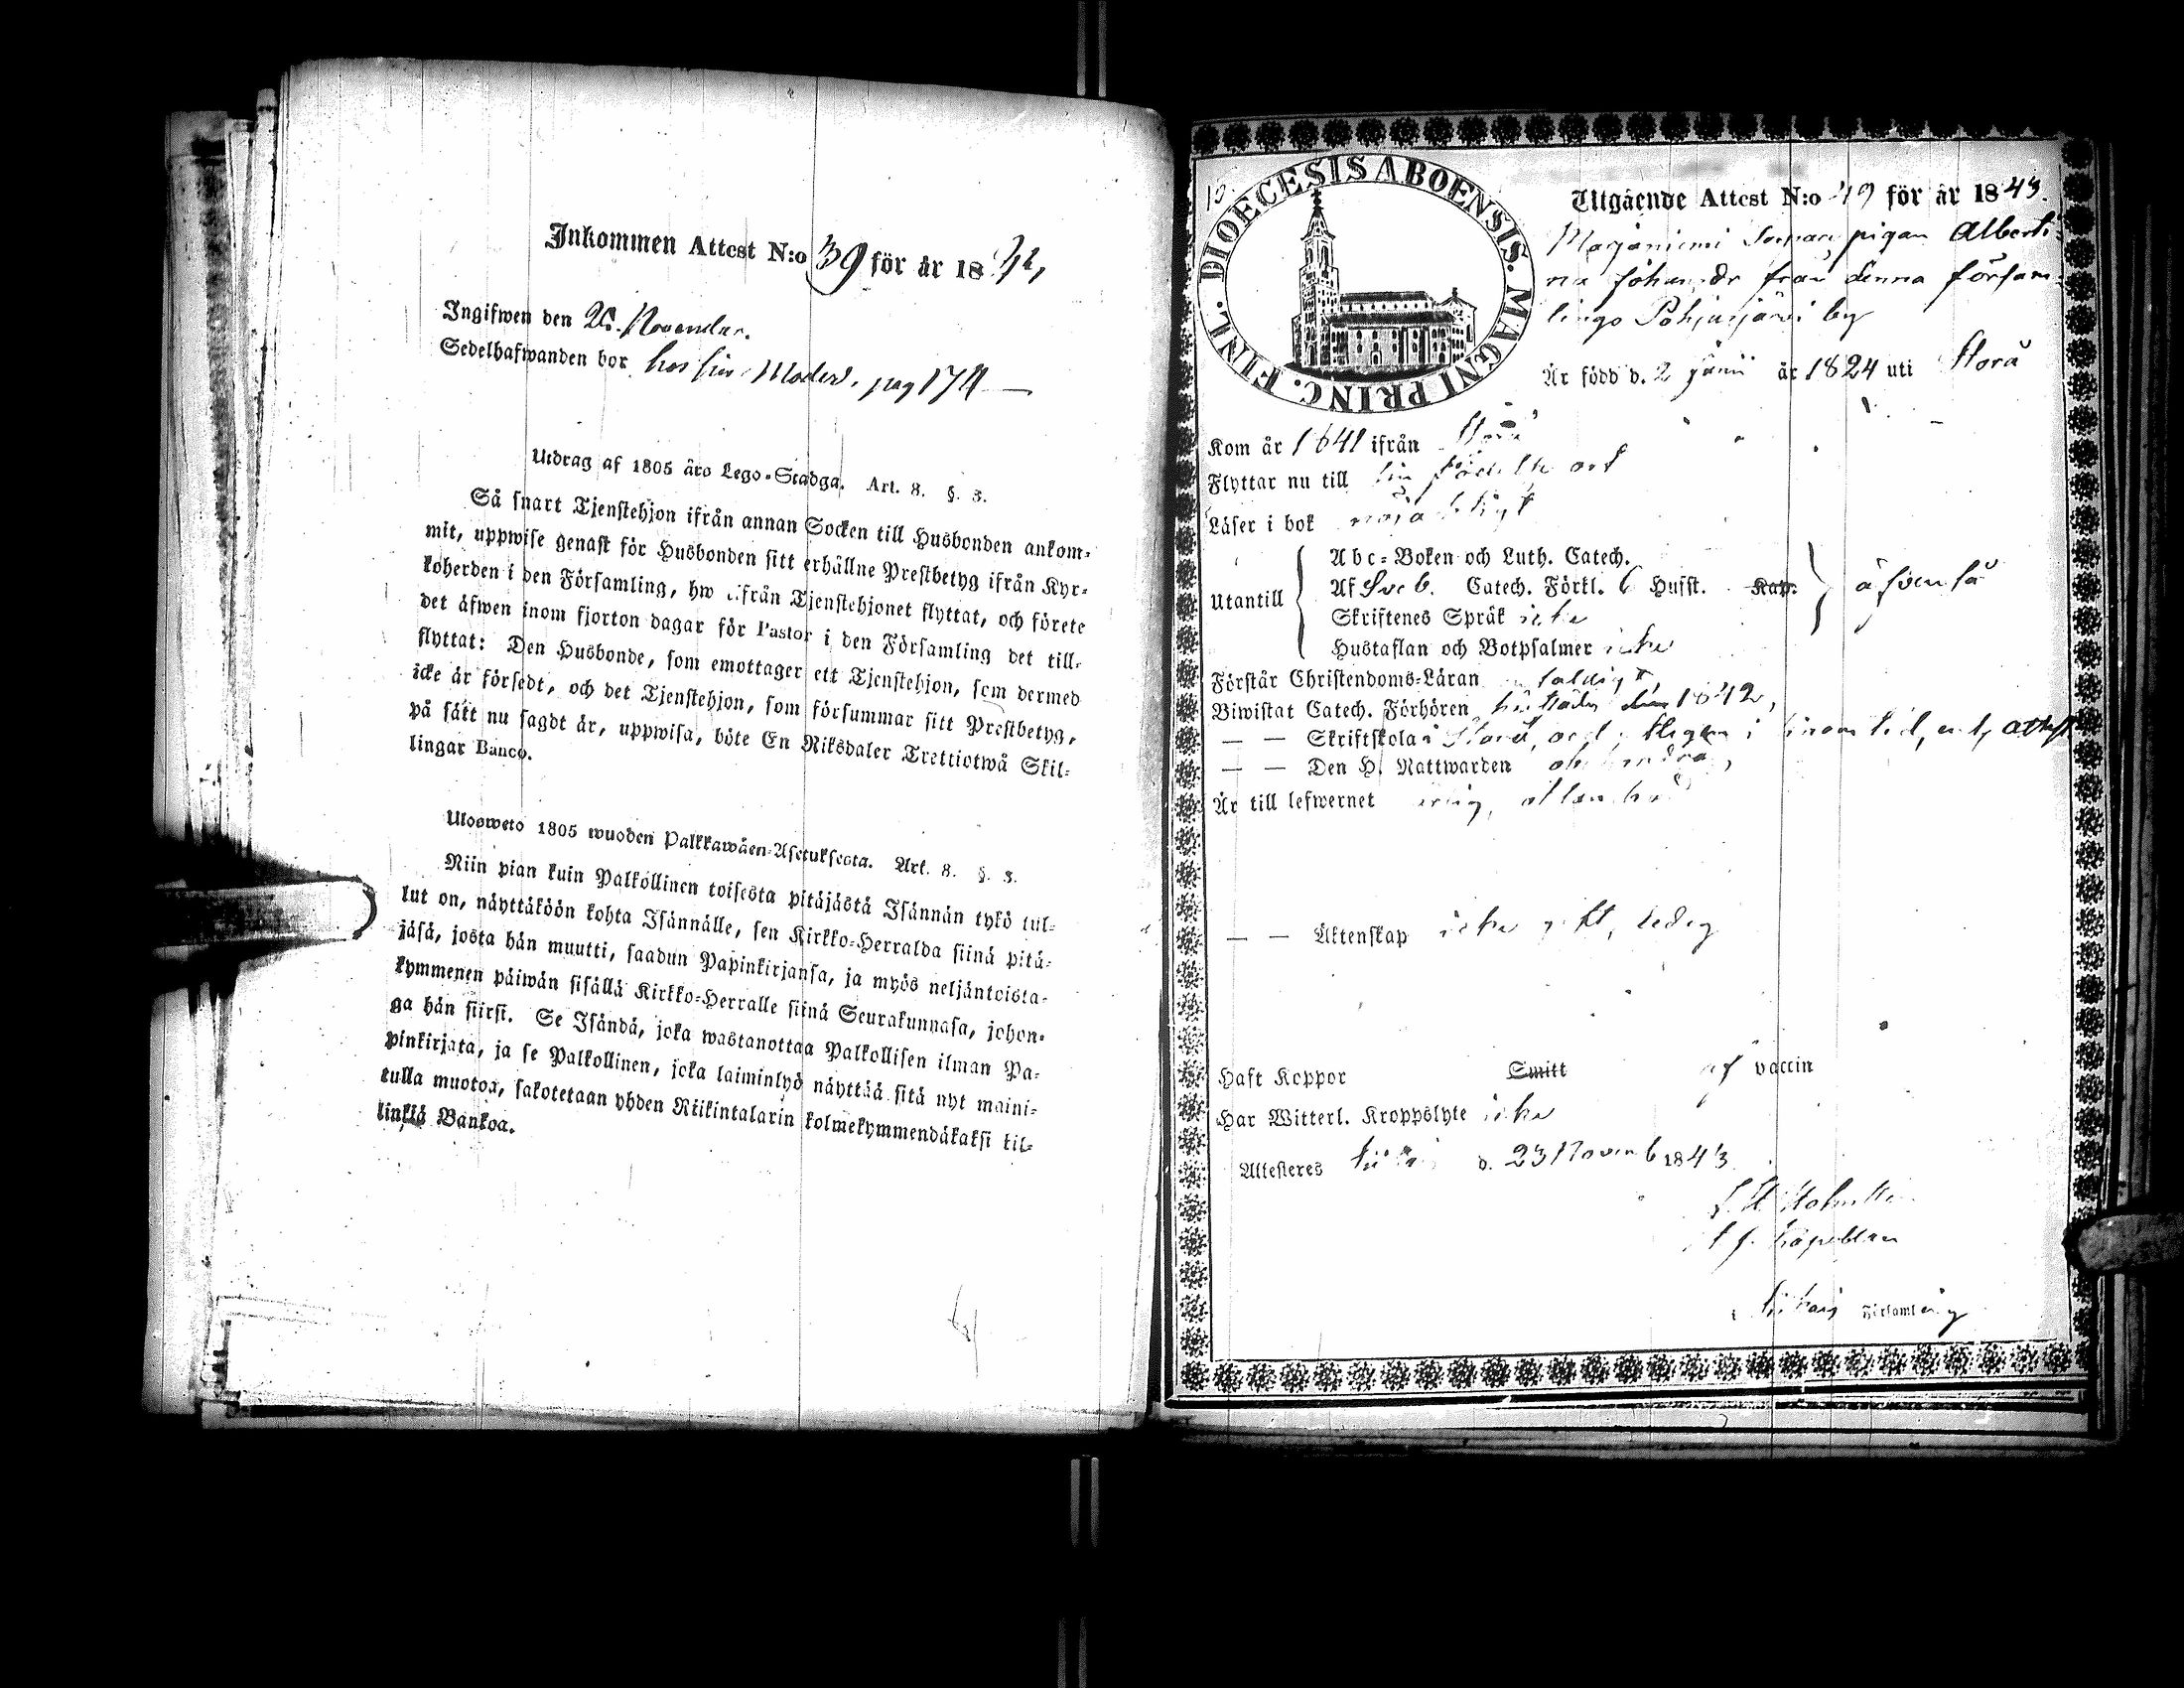 Inkommen Attest N:o 39 för år 18
Ingifwen den 26. November.
Sedelhafwanden bor hos sin Moder, pag 174
Utdrag af 1805 års Lego-Stadga. Art. 8. §. 3.
Så snart Tjenstehjon ifrån annan Socken till Husbonden ankom-
mit, uppwise genast för Husbonden sitt erhållne Prestbetyg ifrån Kyr-
koherden i den Församling, hw ifrån Tjenstehjonet flyttat, och förete
det äfwen inom fjorton dagar för Pastor i den Församling det till-
flyttat: Den Husbonde, som emottager ett Tjenstehjon, som dermed
icke är försedt, och det Tjenstehjon, som försummar sitt Prestbetyg,
på sätt nu sagdt är, uppwisa, böte En Riksdaler Trettiotwå Skil-
lingar Banco.
Ulosweto 1805 wuoden Palkkawäen-Asetuksesta. Art. 8. §. 3.
Niin pian kuin Palkollinen toisesta pitäjästä Isännän tykö tul-
lut on, näyttäköön kohta Isännälle, sen Kirkko-Herralda siinä pitä-
jäsä, josta hän muutti, saadun Papinkirjansa, ja myös neljäntoista-
kymmenen päiwän sisällä Kirkko-Herralle siinä Seurakunnasa, johon-
ga hän siirsi. Se Isändä, joka wastanottaa Palkollisen ilman Pa-
pinkirjata, ja se Palkollinen, joka laiminlyö näyttää sitä nyt maini-
tulla muotoa, sakotetaan yhden Riikintalarin kolmekymmendäkaksi kil-
linkiä Bankoa.
DIOECESIS ABOENSIS. MAGNI PRINC. FINL.
Utgående Attest N:o 49 för år 1843.
Marjaniemi pigan Alberti-
na Johansdr från denna försam-
lings Pohjasjärvi by
Är född d. 2 Junii år 1824 uti Storå
Kom år 1841 ifrån Storå
Flyttar nu till sin födelse ort
Läser i bok nöjaktigt
Utantill
Abc-Boken och Luth. Catech.
Af Sveb. Catech. Förkl. 6 Husst. Kap.
äfven så
Skriftenes Språk icke
Hustaflan och Botpsalmer icke
Förstår Christendoms-Läran
Biwistat Catech. Förhören 1842,
— — Skriftskola i Storå,
— — Den H. Nattwarden
Är till lefwernet
— — Äktenskap icke gift, ledig
Haft Koppor Smitt af vaccin
Har Witterl. Kroppslyte icke
Attesteres d. 23 Novemb 1843
Capellan
Församling